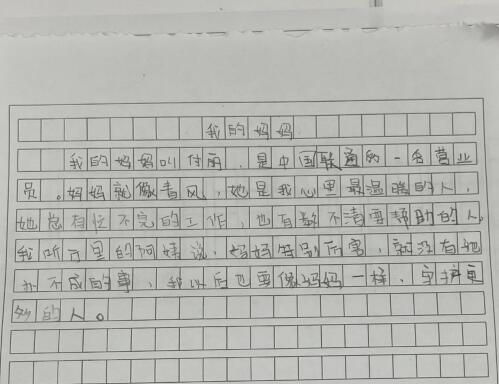 我的妈妈
我的妈妈叫付丽,是中国联通的一名营业
员。妈妈就像春风,她是我心里最温暖的人,
她总有忙不完的工作,也有数不清要帮助的人。
我听厅里的阿姨说,妈妈特别厉害,就没有她
办不成的事,我以后也要像妈妈一样,帮更
多的人。